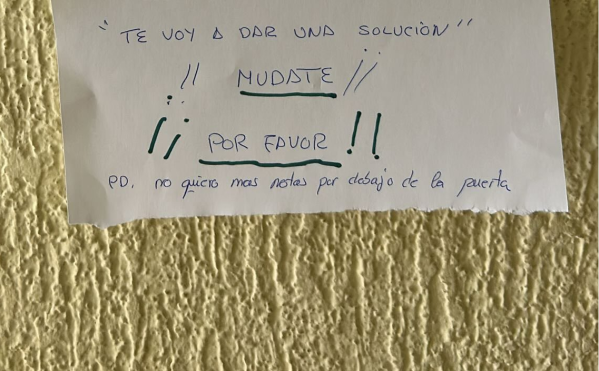 "TE VOY A DAR UNA SOLUCIÒN"
¡¡ MUDATE !!
¡¡ POR FAVOR !!
PD. no quiero mas notas por debajo de la puerta